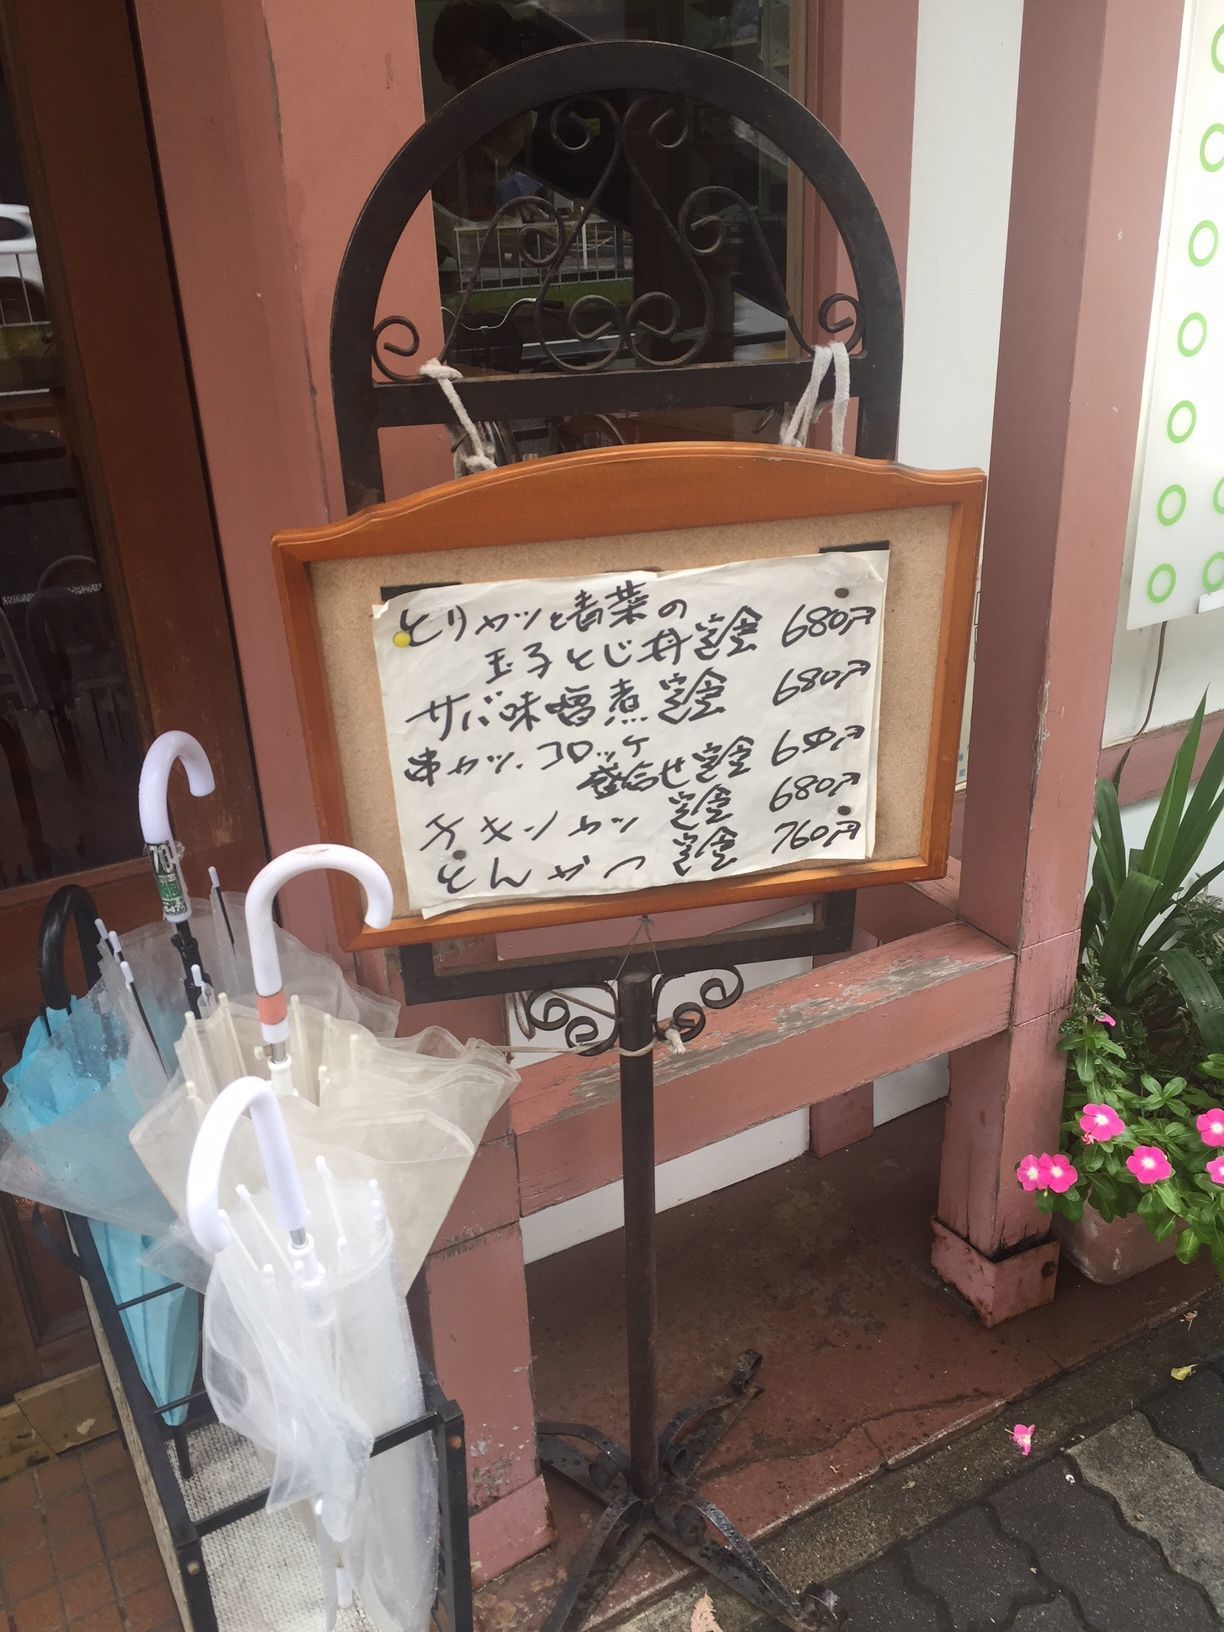 とりカツと青菜の
玉子とじ丼定食 680円
サバ味噌煮定食 680円
串カツ.コロッケ
盛合せ定食 650円
チキンカツ 定食 680円
とんかつ 定食 760円
70